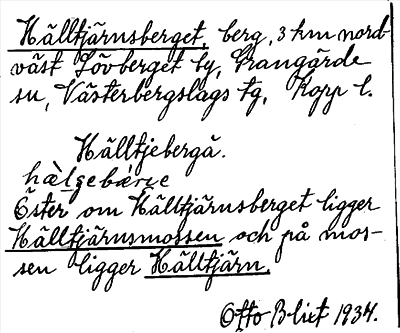 Hälltjärnsberget, berg, 3 km nord-
väst Lövberget by, Grangärde
sn, Västerbergslags tg, Kopp l.
Hälltjebergä.
Öster om Hälltjärnsberget ligger
Hälltjärnsmossen och på mos-
sen ligger Hälltjärn.
Otto Blixt 1934.